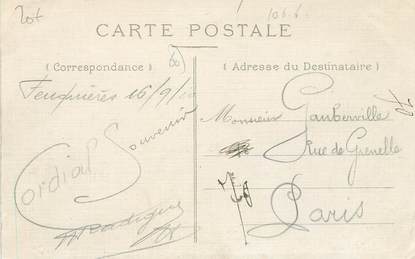 lot
106.6
CARTE POSTALE
60
( Correspondance )
( Adresse du Destinataire )
Feuquières 16/9/
Cordial Souvenir
Monsieur Gauberville
Rue de Grenelle
Paris